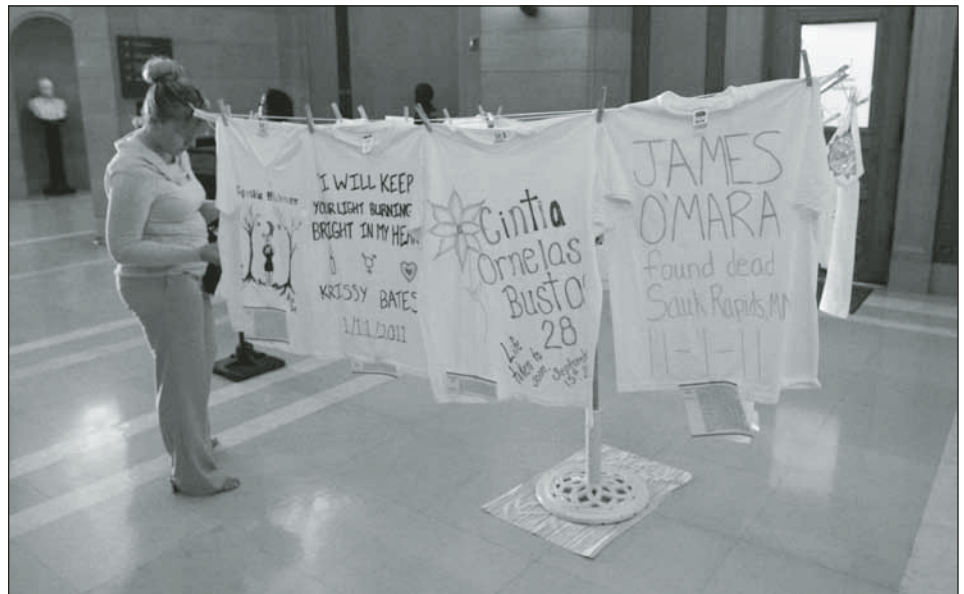 "I WILL KEEP
YOUR LIGHT BURNING
BRIGHT IN MY HEA
KRISSY BATES
1/11/2011
Cintia
Ornelas
Busto
28
Life
taken to
soon. September
15th
JAMES
O'MARA
found dead
Sauk Rapids, MN
11-1-11